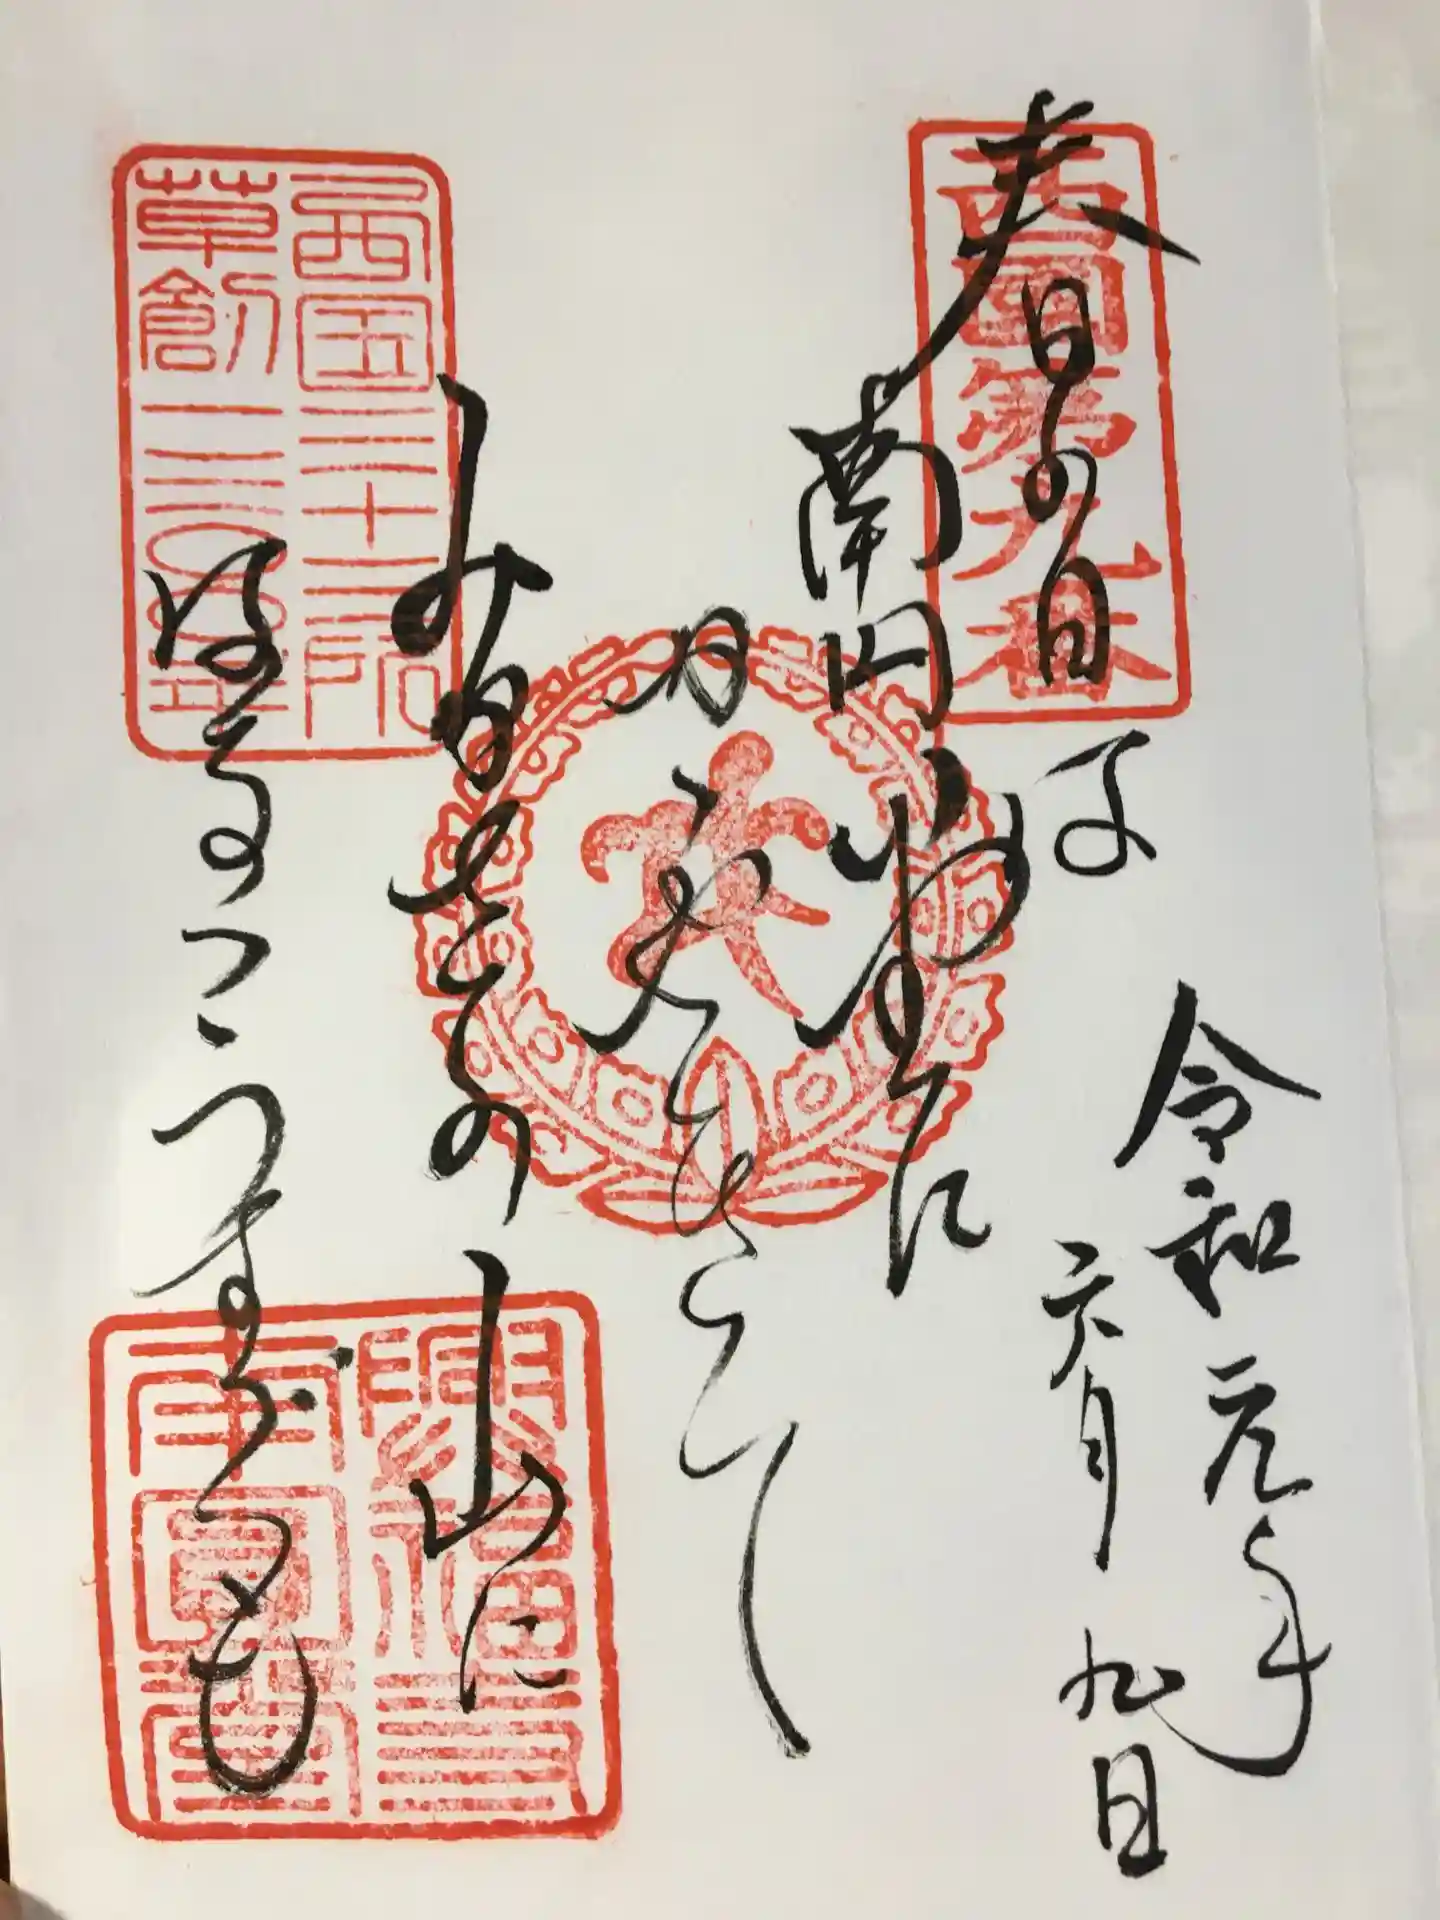 令和元年
六月九日
西国第九番
春の日は
南円堂に
かゝやきて
みかさの山に
はるゝうすくも
西国三十三所
草創一三〇〇年
興福寺
南圓堂